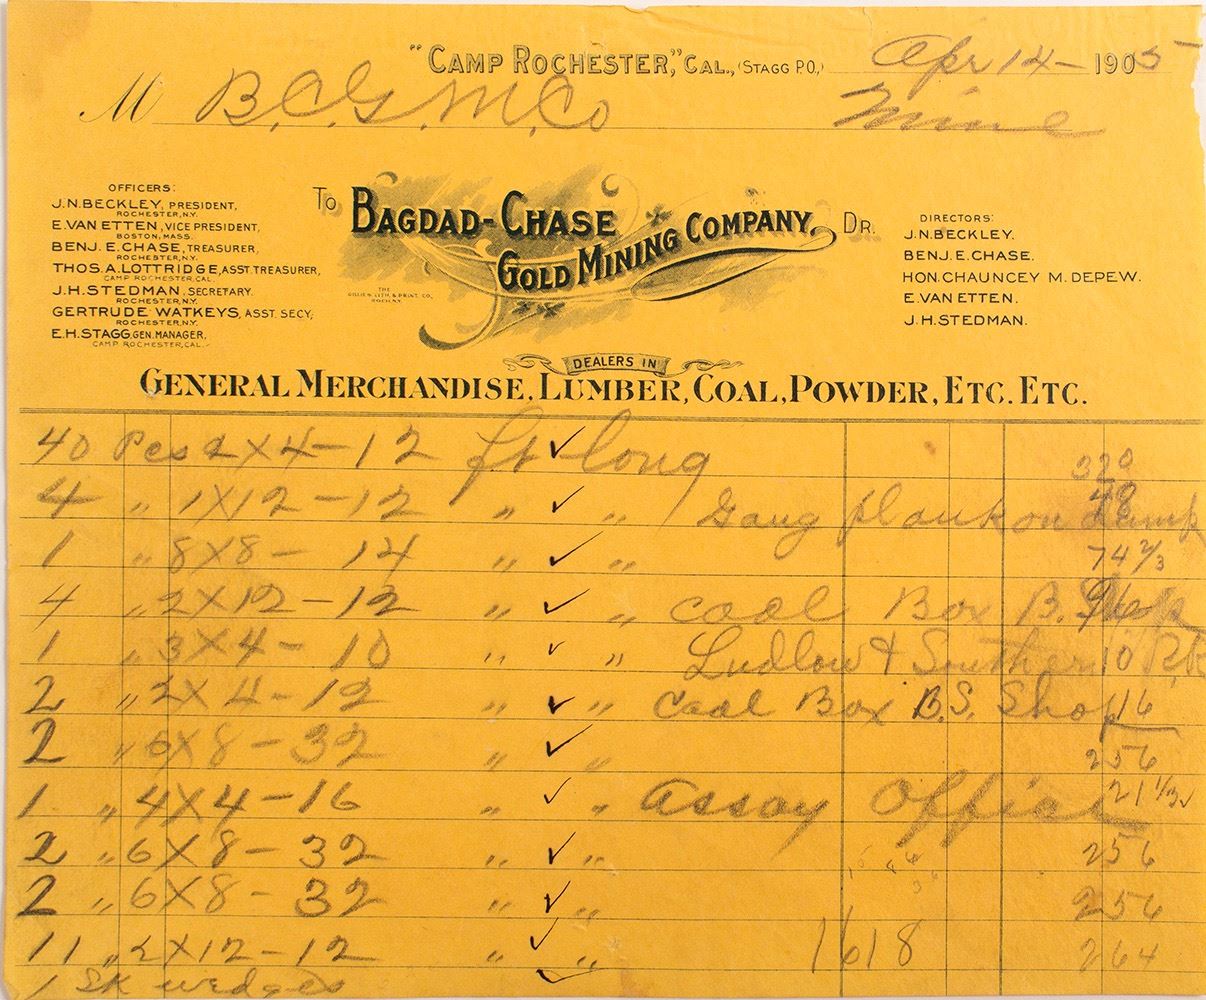 "CAMP ROCHESTER," CAL., (STAGG P.O.,) Apr 14 - 1905
M B.C.G.M.Co Mine
OFFICERS:
J.N.BECKLEY, PRESIDENT,
ROCHESTER, N.Y.
E.VAN ETTEN, VICE PRESIDENT,
BOSTON, MASS.
BENJ. E. CHASE, TREASURER,
ROCHESTER, N.Y.
THOS. A. LOTTRIDGE, ASST. TREASURER,
CAMP ROCHESTER, CAL.
J.H.STEDMAN, SECRETARY.
ROCHESTER, N.Y.
GERTRUDE WATKEYS, ASST. SECY;
ROCHESTER, N.Y.
E.H.STAGG, GEN. MANAGER,
CAMP ROCHESTER, CAL.
To BAGDAD-CHASE GOLD MINING COMPANY, DR.
THE
LITH. & PRINT. CO.
DIRECTORS:
J.N.BECKLEY.
BENJ. E. CHASE.
HON. CHAUNCEY M. DEPEW.
E. VAN ETTEN.
J. H. STEDMAN.
DEALERS IN
GENERAL MERCHANDISE, LUMBER, COAL, POWDER, ETC. ETC.
40 Pcs 2 X 4 - 12 ft ✓ long 320
4 " 1 X 12 - 12 " ✓ " Gang plank on dump 48
1 " 8 X 8 - 14 " ✓ " 74 2/3
4 " 2 X 12 - 12 " ✓ " Coal Box B. Shop 96
1 " 3 X 4 - 10 " ✓ " Ludlow & Southern 10
2 " 2 X 4 - 12 " ✓ " Coal Box B.S. Shop 16
2 " 6 X 8 - 32 " ✓ " 256
1 " 4 X 4 - 16 " ✓ " Assay Office 21 1/3
2 " 6 X 8 - 32 " ✓ " 256
2 " 6 X 8 - 32 " ✓ " 256
11 " 2 X 12 - 12 " ✓ " 1618 264
1 SK wedges ✓